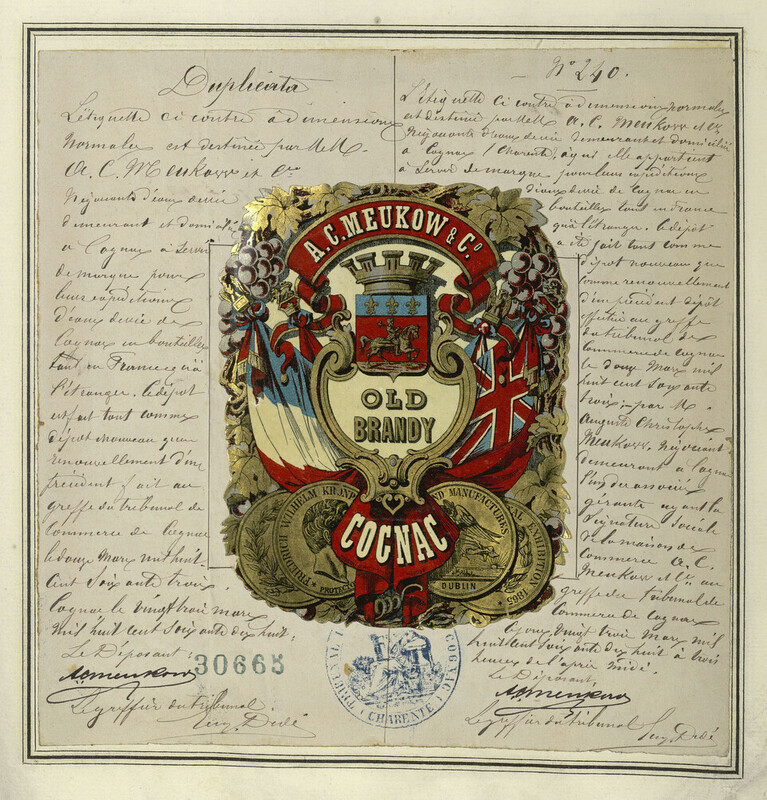 Duplicata
L'étiquette ci contre à dimensions
normales est destinée par MM.
A. C. Meukow et Cie
Négociants d'eaux de vie
demeurant et domiciliés
à Cognac à servir
de marque pour
leurs expéditions
d'eaux de vie de
Cognac en bouteilles
tant en France qu'à
l'étranger. Le dépôt
est fait tant comme
dépôt nouveau que
renouvellement d'un
précédent fait au
greffe du tribunal de
Commerce de Cognac
le douze Mars mil huit
cent soixante trois.
Cognac le vingt trois mars
mil huit cent soixante dix huit:
Le Déposant:
ACMeukow
30665
Le greffier du tribunal.
Eug. Dedé
No 240.
L'étiquette ci contre à dimensions normales
est destinée par MM A. C. Meukow & Cie
Négociants d'eaux de vie demeurant et domiciliés
à Cognac (Charente), à qui elle appartient
à servir de marque pour leurs expéditions
d'eaux de vie de Cognac en
bouteilles tant en France
qu'à l'étranger. Le dépôt
a été fait tant comme
dépôt nouveau que
comme renouvellement
d'un précédent dépôt
effectué au greffe
du tribunal de
Commerce de Cognac
le douze Mars mil
huit cent soixante
trois; par M.
Auguste Christophe
Meukow, Négociant
demeurant à Cognac
l'un des associés
gérants ayant la
signature sociale
de la maison de
Commerce A. C.
Meukow & Cie, au
greffe du tribunal de
Commerce de Cognac
le jour vingt trois Mars mil
huit cent soixante dix huit à trois
heures de l'après midi.
Le Déposant,
ACMeukow
Le greffier du tribunal
Eug. Dedé
A. C. MEUKOW & Co
OLD
BRANDY
COGNAC
FRIEDRICH WILHELM KRONP
PROTEC
ND MANUFACTURES
AL EXHIBITION 1865
DUBLIN
COGNAC
CHARENTE